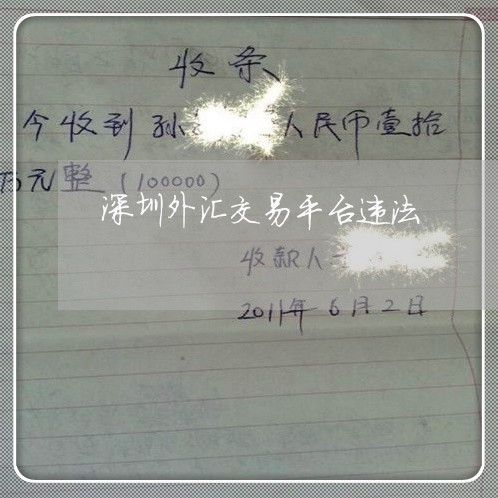 收条
今收到孙 人民币壹拾
万元整（100000）
深圳外汇交易平台违法
收款人
2011年6月2日